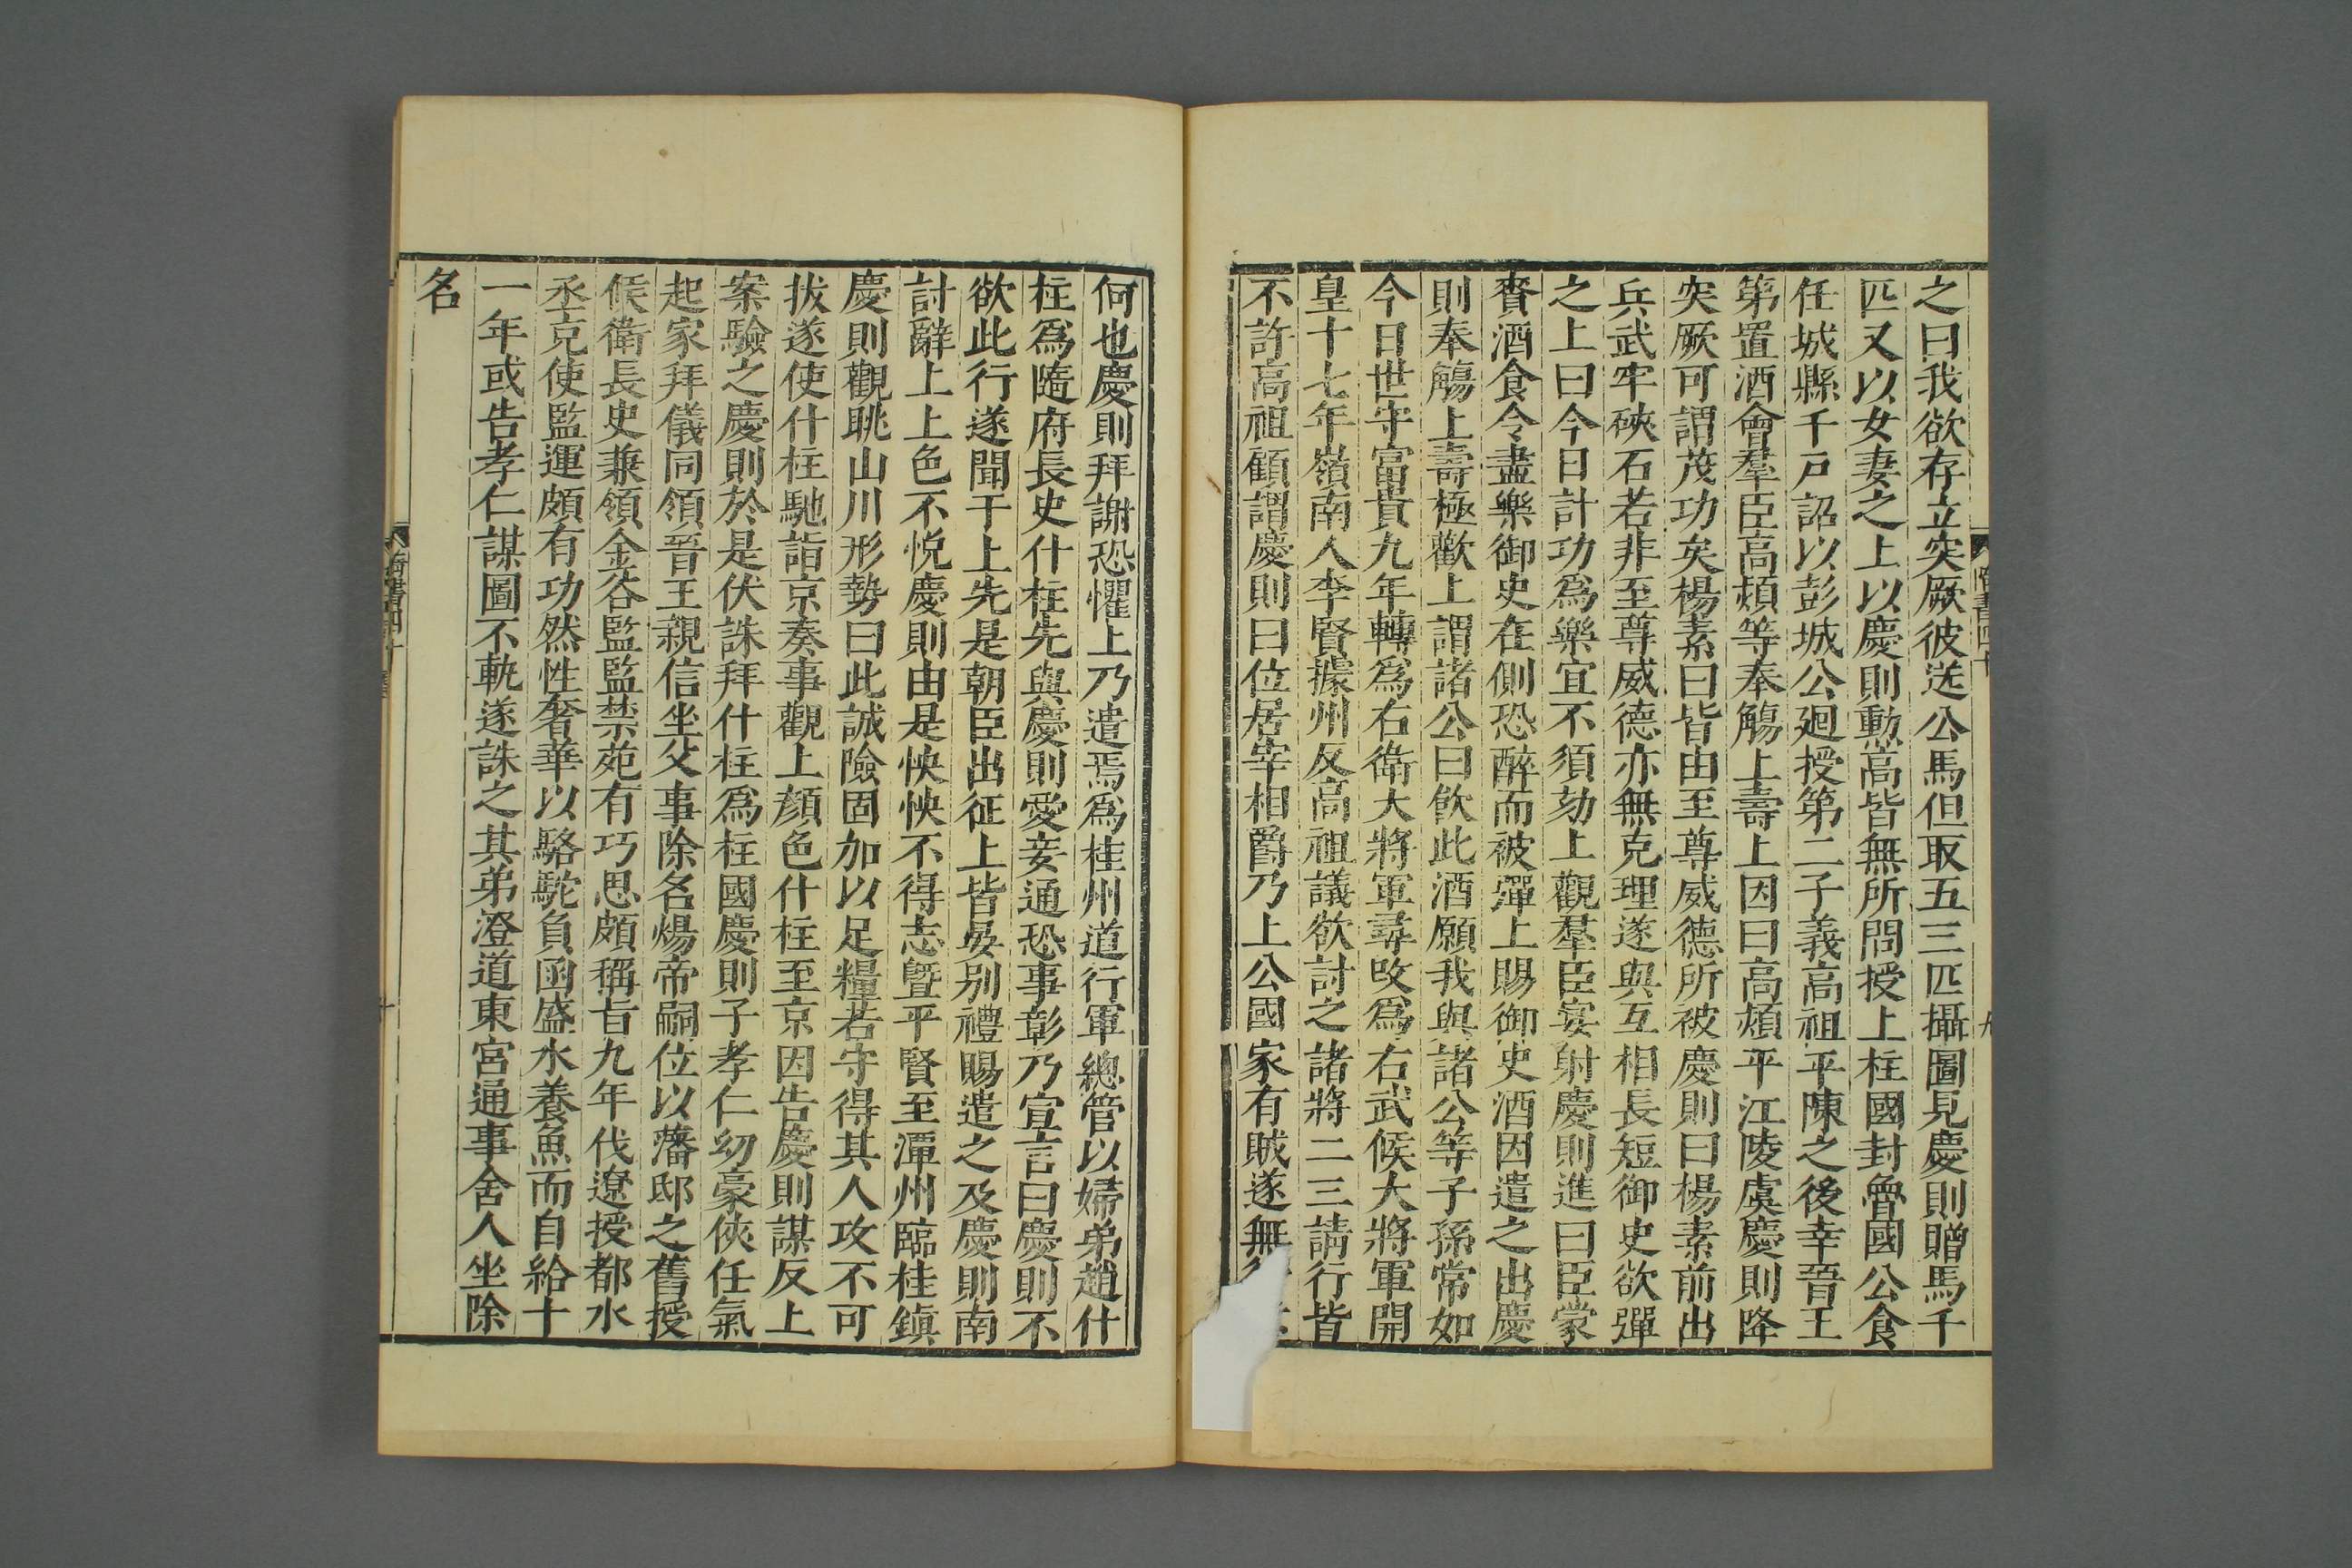 之曰我欲存立突厥彼送公馬但取五三匹攝圖見慶則贈馬千
匹又以女妻之上以慶則勳高皆無所問授上柱國封魯國公食
任城縣千戸詔以彭城公廻授第二子義高祖平陳之後幸晉王
第置酒會羣臣高熲等奉觴上壽上因曰高熲平江陵虞慶則降
突厥可謂茂功矣楊素曰皆由至尊威德所被慶則曰楊素前出
兵武牢硤石若非至尊威德亦無克理遂與互相長短御史欲彈
之上曰今日計功爲樂宜不須劾上觀羣臣宴射慶則進曰臣蒙
賚酒食令盡樂御史在側恐醉而被彈上賜御史酒因遣之出慶
則奉觴上壽極歡上謂諸公曰飲此酒願我與諸公等子孫常如
今日世守富貴九年轉爲右衛大將軍尋改爲右武候大將軍開
皇十七年嶺南人李賢據州反高祖議欲討之諸將二三請行皆
不許高祖顧謂慶則曰位居宰相爵乃上公國家有賊遂無
何也慶則拜謝恐懼上乃遣焉爲桂州道行軍總管以婦弟趙什
柱爲隨府長史什柱先與慶則愛妾通恐事彰乃宣言曰慶則不
欲此行遂聞于上先是朝臣出征上皆宴别禮賜遣之及慶則南
討辭上上色不悅慶則由是怏怏不得志暨平賢至潭州臨桂鎮
慶則觀眺山川形勢曰此誠險固加以足糧若守得其人攻不可
拔遂使什柱馳詣京奏事觀上顔色什柱至京因告慶則謀反上
案驗之慶則於是伏誅拜什柱爲柱國慶則子孝仁幼豪俠任氣
起家拜儀同領晉王親信坐父事除名煬帝嗣位以藩邸之舊授
候衛長史兼領金谷監監禁苑有巧思頗稱旨九年伐遼授都水
丞克使監運頗有功然性奢華以駱駝負函盛水養魚而自給十
一年或告孝仁謀圖不軌遂誅之其弟澄道東宮通事舍人坐除
名